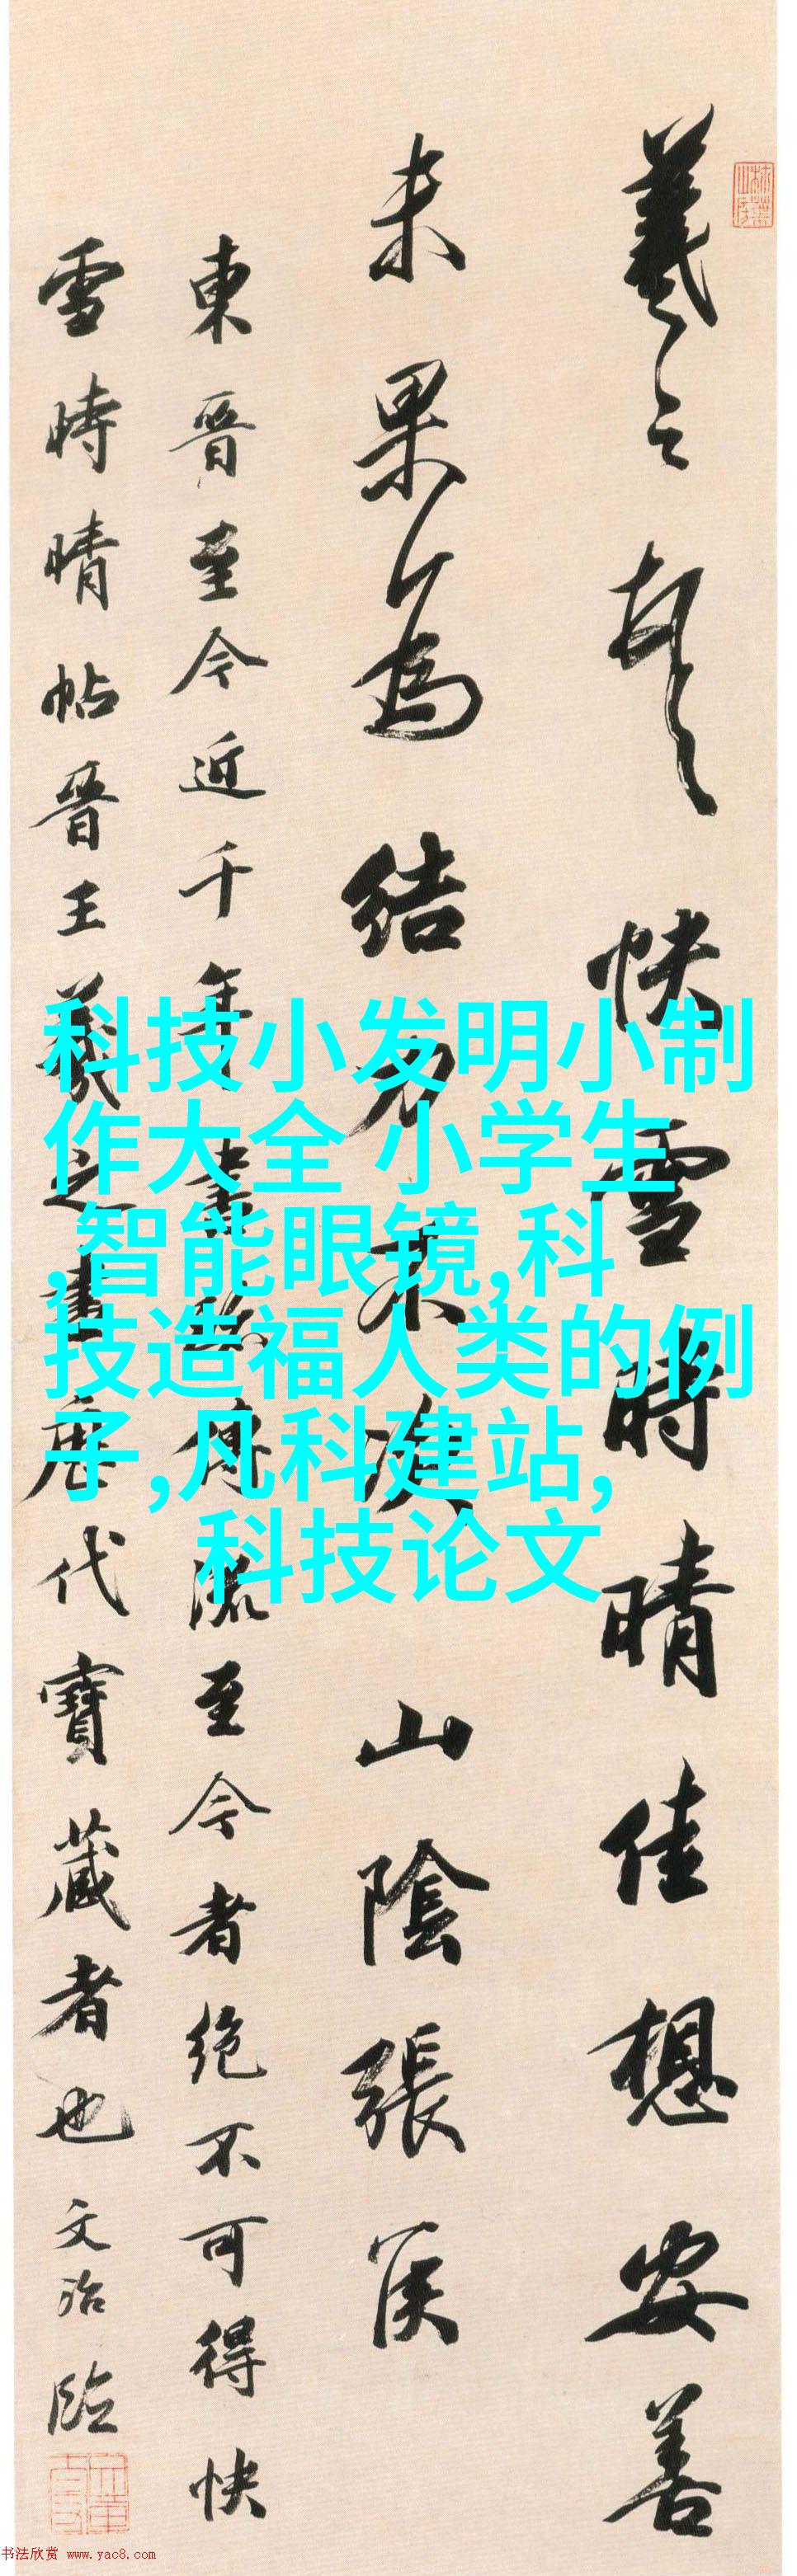 羲之頓首快雪時晴佳想安善
未果為結力不次 山陰張侯
東晉至今近千年書跡傳流至今者絕不可得快
雪時晴帖晉王羲之書歷代寶藏者也文治臨
科技小发明小制
作大全 小学生
,智能眼镜,科
技造福人类的例
子,凡科建站,
科技论文
书法欣赏 www.yac8.com